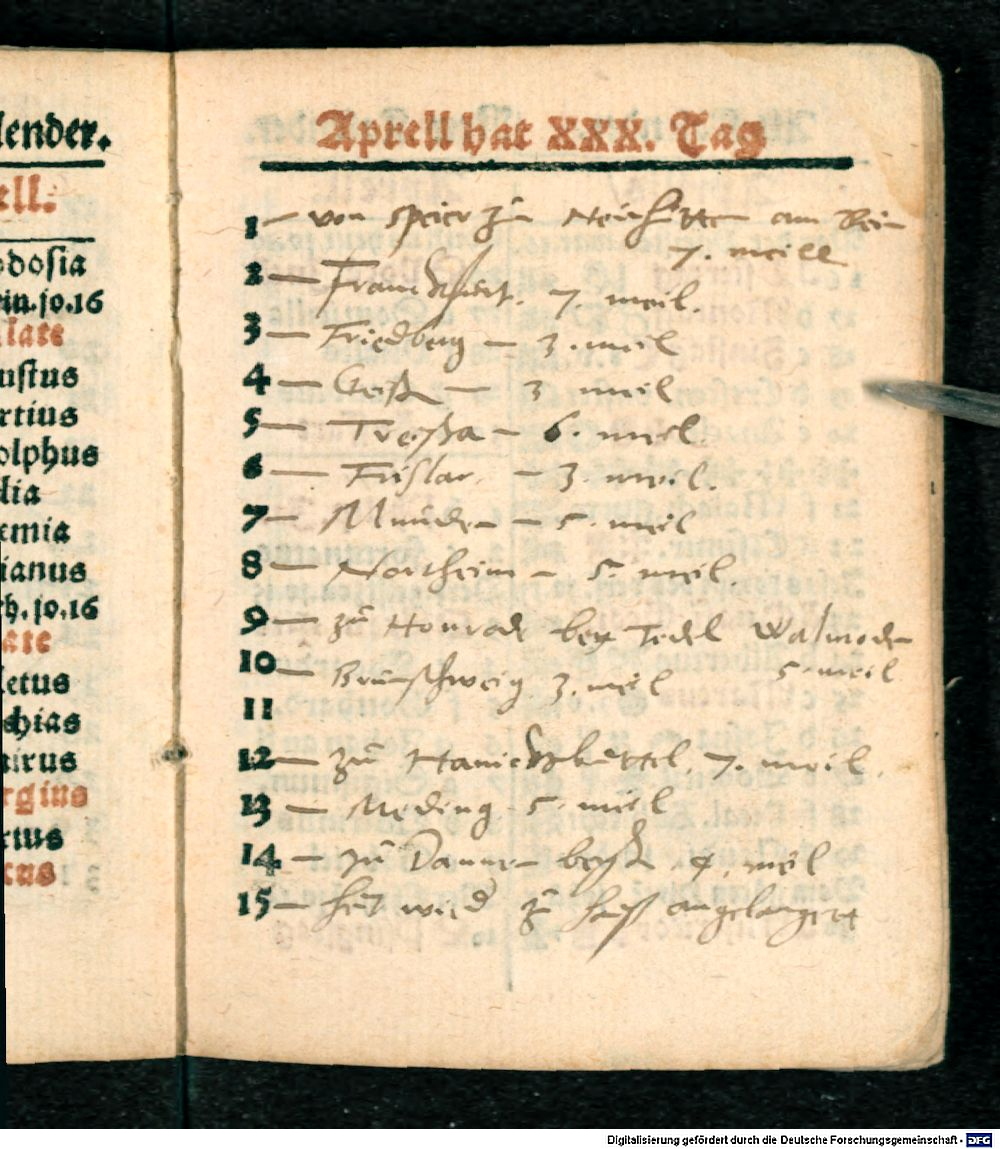 lender.
ell.
odosia
ein.jo.16
kate
ustus
rtius
olphus
lia
emia
ianus
rh.jo.16
ate
letus
chias
nirus
rgius
rius
cus
Aprell hat XXX. Tag
1 — von speier zů am Rein
7. meill
2 — Franckfurt. 7. meil.
3 — Friedberg — 3. meil
4 — Geiß — 3 meil
5 — Treißa — 6. meil.
6 — Frislar — 3. meil.
7 — Můnden — 5. meil
8 — Northeim — 5. meil.
9 — zů bey Tedel Walmoden
5. meil
10 — Brunschweig 3. meil
11
12 — zů 7. meil.
13 — Meding 5. meil
14 — zů 4. meil
15 — zů hauß angelanget
Digitalisierung gefördert durch die Deutsche Forschungsgemeinschaft - DFG